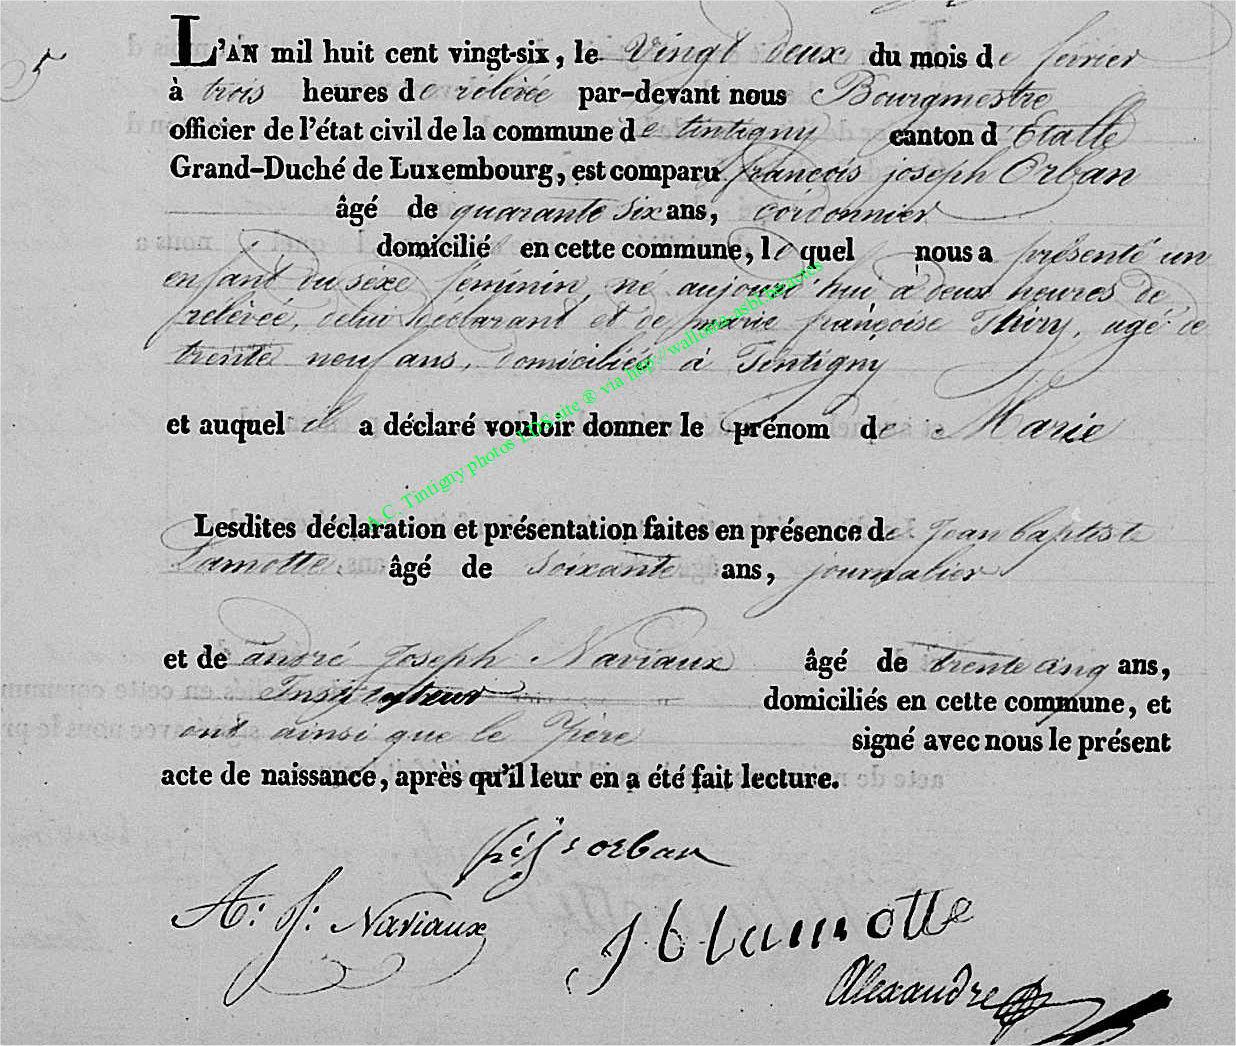 5
L'AN mil huit cent vingt-six, le vingt deux du mois de fevrier
à trois heures de rélévée par-devant nous Bourgmestre
officier de l'état civil de la commune de tintigny canton d'Etalle
Grand-Duché de Luxembourg, est comparu françois joseph Orban
âgé de quarante six ans, cordonnier
domicilié en cette commune, le quel nous a présenté un
enfant du séxe féminin, né aujourd'hui à deux heures de
rélévée, de lui déclarant et de marie françoise Thiry, agé de
trente neuf ans, domiciliée à Tintigny
et auquel il a déclaré vouloir donner le prénom de Marie
Lesdites déclaration et présentation faites en présence de Jean baptiste
Lamotte. âgé de soixante ans, journalier
et de andré Joseph Naviaux âgé de trente cinq ans,
Instituteur domiciliés en cette commune, et
ont ainsi que le Père signé avec nous le présent
acte de naissance, après qu'il leur en a été fait lecture.
orban
A: J: Naviaux
J B Lamotte
Alexandre
A.C. Tintigny photos LDS site ® via http://wallonia-asbl.be/actes